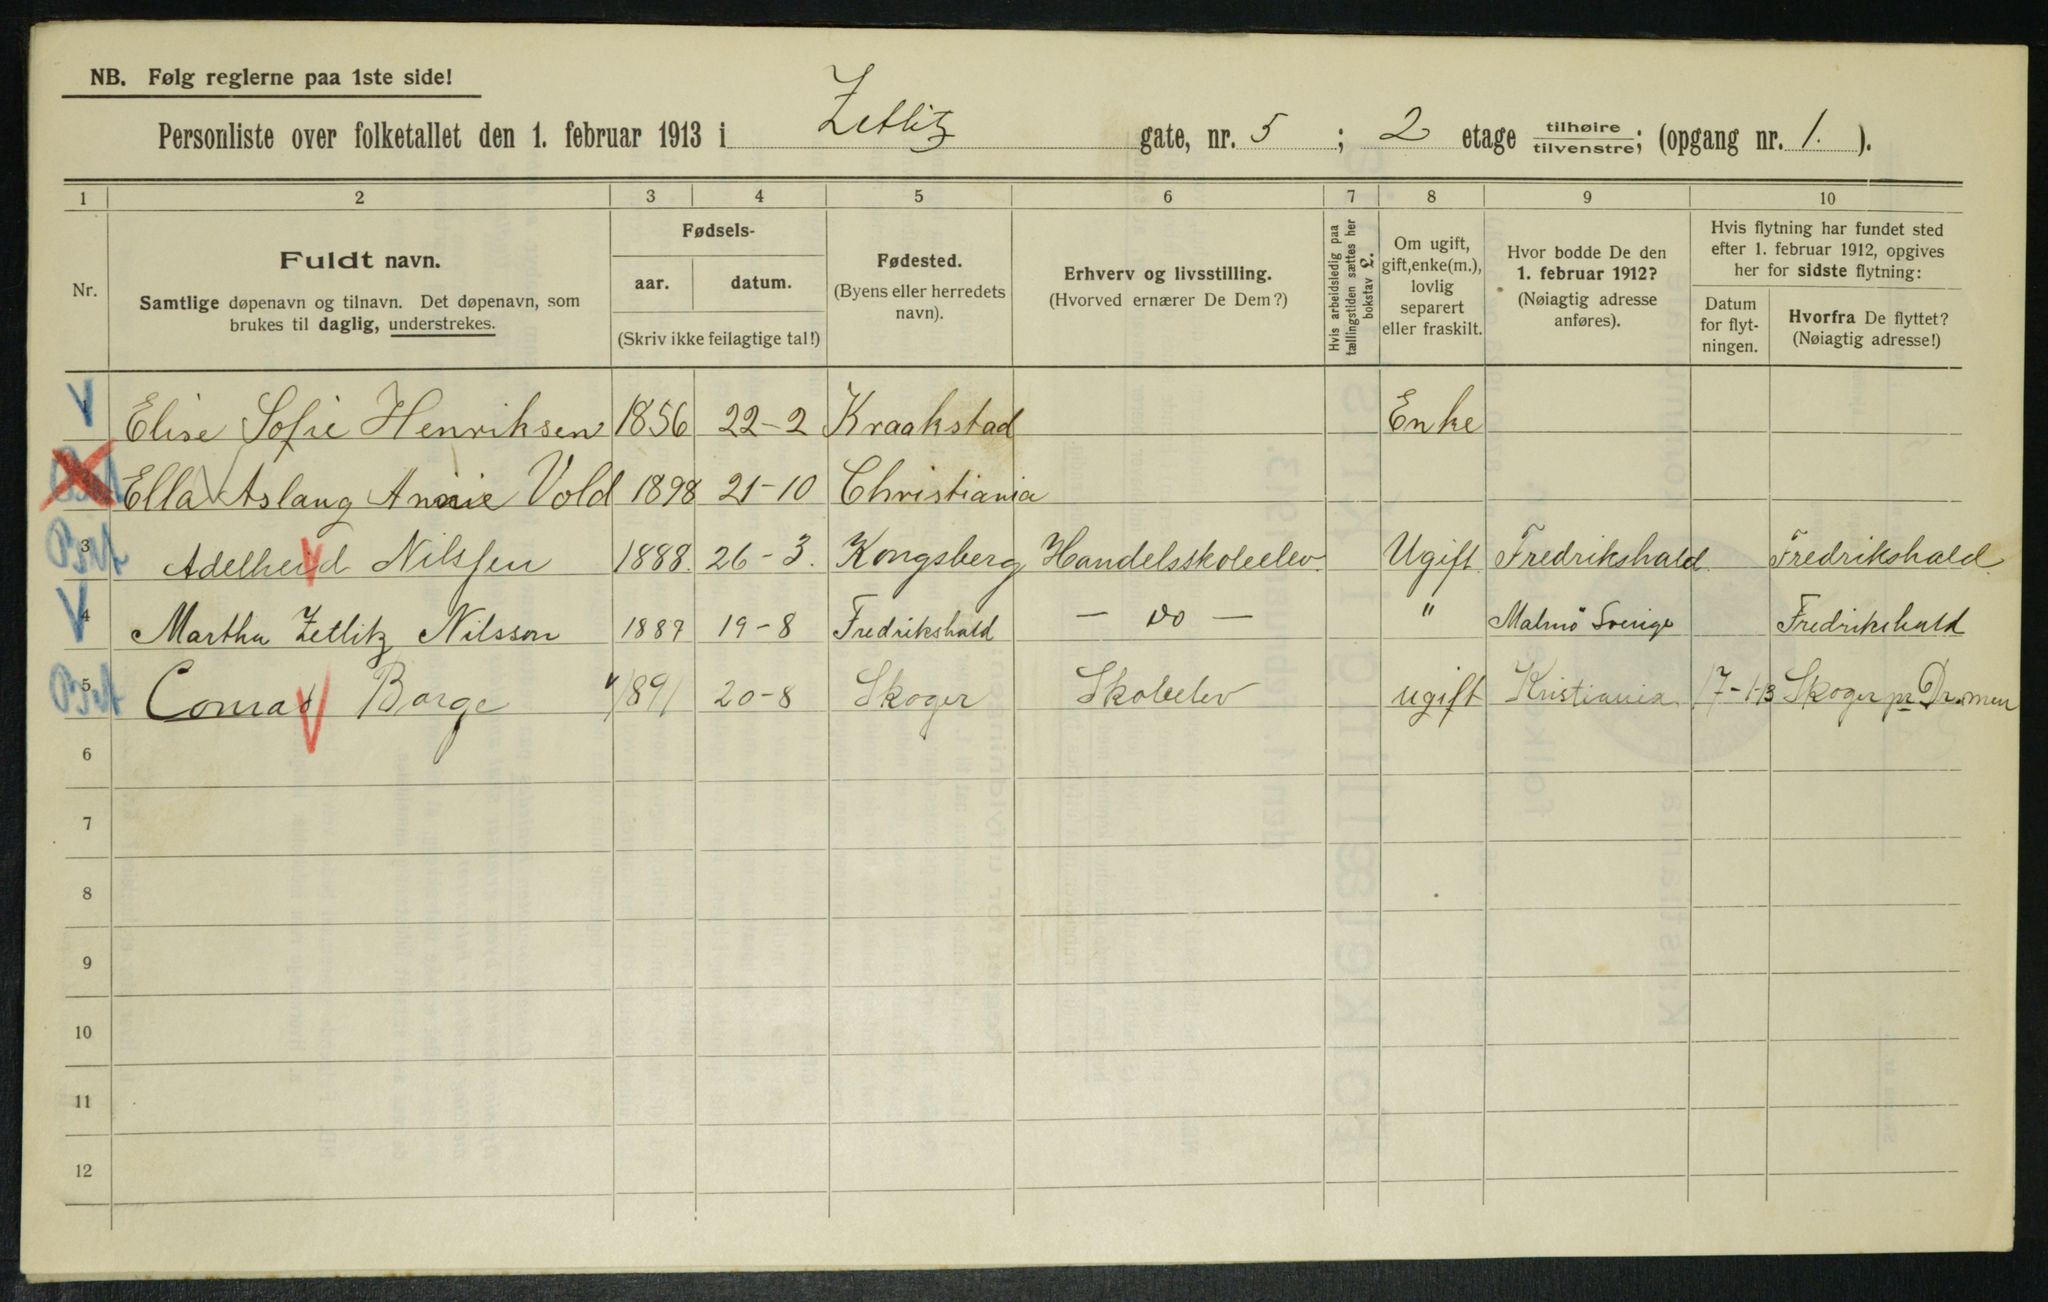 NB. Følg reglerne paa 1ste side!
Personliste over folketallet den 1. februar 1913 i Zetlitz gate, nr. 5 ; 2 etage tilhøire tilvenstre; (opgang nr. 1. ).
1 2 3 4 5 6 7 8 9 10
Nr.
Fuldt navn.
Samtlige døpenavn og tilnavn. Det døpenavn, som
brukes til daglig, understrekes.
Fødsels-
aar. datum.
(Skriv ikke feilagtige tal!)
Fødested.
(Byens eller herredets
navn).
Erhverv og livsstilling.
(Hvorved ernærer De Dem?)
Hvis arbeidsledig paa
tællingstiden sættes her
bokstav L.
Om ugift,
gift, enke(m.),
lovlig
separert
eller fraskilt.
Hvor bodde De den
1. februar 1912?
(Nøiagtig adresse
anføres).
Hvis flytning har fundet sted
efter 1. februar 1912, opgives
her for sidste flytning:
Datum
for flyt-
ningen.
Hvorfra De flyttet?
(Nøiagtig adresse!)
1 Elise Sofie Henriksen 1856 22-2 Kraakstad Enke
Ella Aslaug Annie Vold 1898 21-10 Christiania
3 Adelheid Nilssen 1888. 26-3. Kongsberg Handelsskoleelev. Ugift. Fredrikshald. Fredrikshald.
4 Martha Zetlitz Nilsson 1887 19-8 Fredrikshald — do — " Malmö Sverige Fredrikshald
5 Conrad Borge 1891 20-8 Skoger Skoleelev ugift Kristiania 17-1-13 Skoger pr Drammen
6
7
8
9
10
11
12